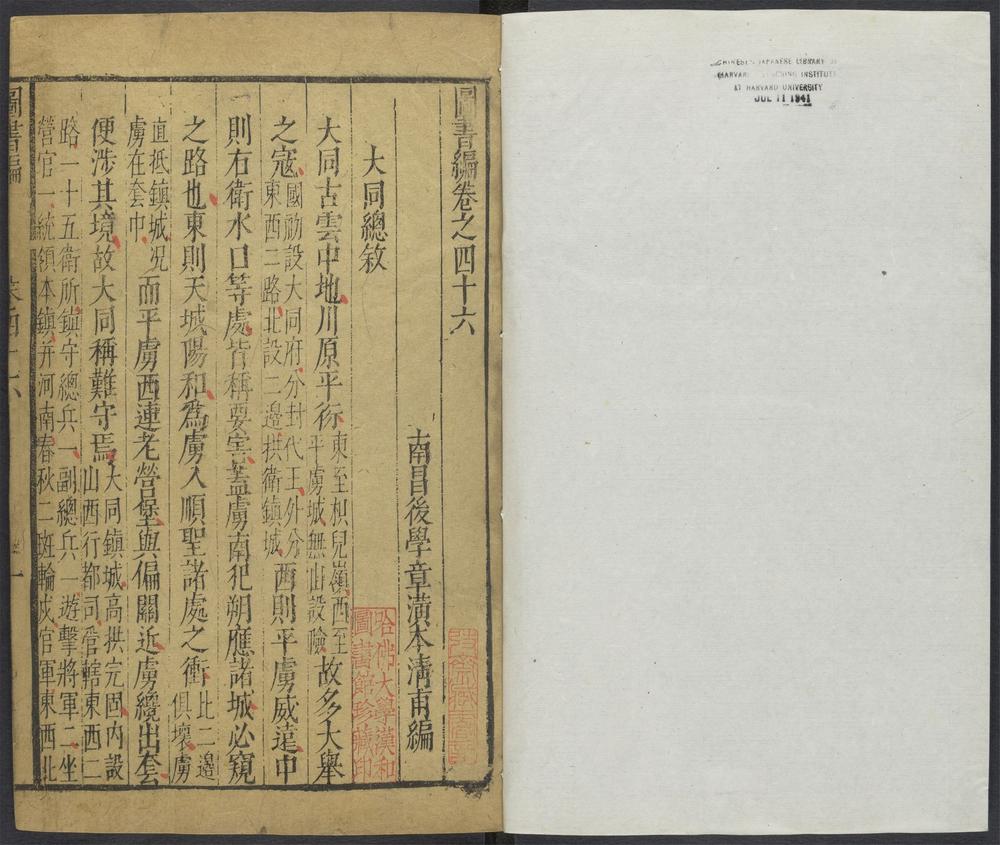 CHINESE-JAPANESE LIBRARY OF
HARVARD-YENCHING INSTITUTE
AT HARVARD UNIVERSITY
JUL 11 1941
圖書編卷之四十六
南昌後學章潢本清甫編
大同總敘
哈佛大學漢和
圖書館珍藏印
大同古雲中地川原平衍東至枳兒嶺西至平虜城無山設險故多大舉
之寇國初設大同府分封代王外分東西二路北設二邊拱衛鎮城西則平虜威遠中
則右衛水口等處皆稱要害蓋虜南犯朔應諸城必窺
之路也東則天城陽和為虜入順聖諸處之衝比二邊俱壞虜
直抵鎮城況虜在套中而平虜西連老營堡與偏關近虜纔出套
便涉其境故大同稱難守焉大同鎮城高拱完固內設山西行都司管轄東西二
路一十五衛所鎮守總兵一副總兵一遊擊將軍二坐
營官一統領本鎮并河南春秋二班輪戍官軍東西北
圖書編